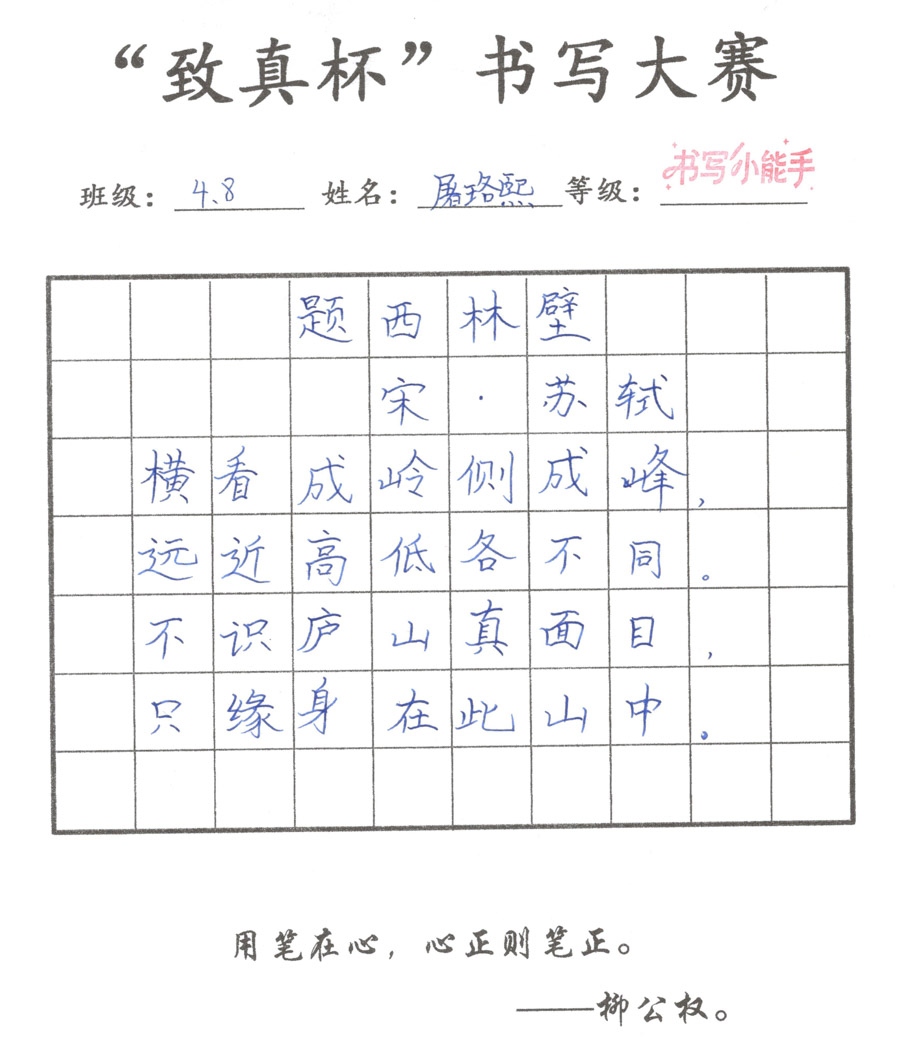 “致真杯”书写大赛
书写小能手
班级：4.8 姓名：屠珞熙 等级：
题西林壁
宋·苏轼
横看成岭侧成峰，
远近高低各不同。
不识庐山真面目，
只缘身在此山中。
用笔在心，心正则笔正。
——柳公权。